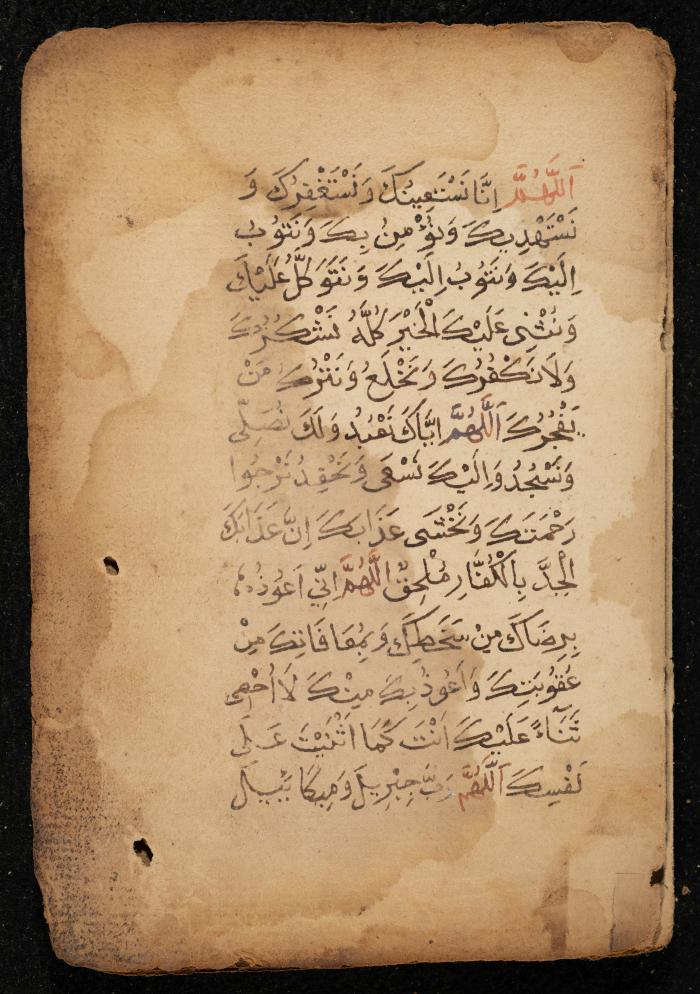 اَللّٰهُمَّ اِنَّا نَسْتَعِينُكَ وَنَسْتَغْفِرُكَ وَ
نَسْتَهْدِيكَ وَنُؤْمِنُ بِكَ وَنَتُوبُ
اِلَيْكَ وَنَتُوبُ اِلَيْكَ وَنَتَوَكَّلُ عَلَيْكَ
وَنُثْنِى عَلَيْكَ الْخَيْرَ كُلَّهُ نَشْكُرُكَ
وَلَا نَكْفُرُكَ وَنَخْلَعُ وَنَتْرُكُ مَنْ
يَفْجُرُكَ اَللّٰهُمَّ اِيَّاكَ نَعْبُدُ وَلَكَ نُصَلِّى
وَنَسْجُدُ وَاِلَيْكَ نَسْعَى وَنَحْفِدُ نَرْجُوا
رَحْمَتَكَ وَنَخْشَى عَذَابَكَ اِنَّ عَذَابَكَ
الْجِدَّ بِالْكُفَّارِ مُلْحِقٌ اَللّٰهُمَّ اِنِّي اَعُوذُ
بِرِضَاكَ مِنْ سَخَطِكَ وَبِمُعَافَاتِكَ مِنْ
عُقُوبَتِكَ وَاَعُوذُ بِكَ مِنْكَ لَا اُحْصِى
ثَنَآءً عَلَيْكَ اَنْتَ كَمَا اَثْنَيْتَ عَلَى
نَفْسِكَ اَللّٰهُمَّ رَبَّ جِبْرِيلَ وَمِيكَائِيلَ